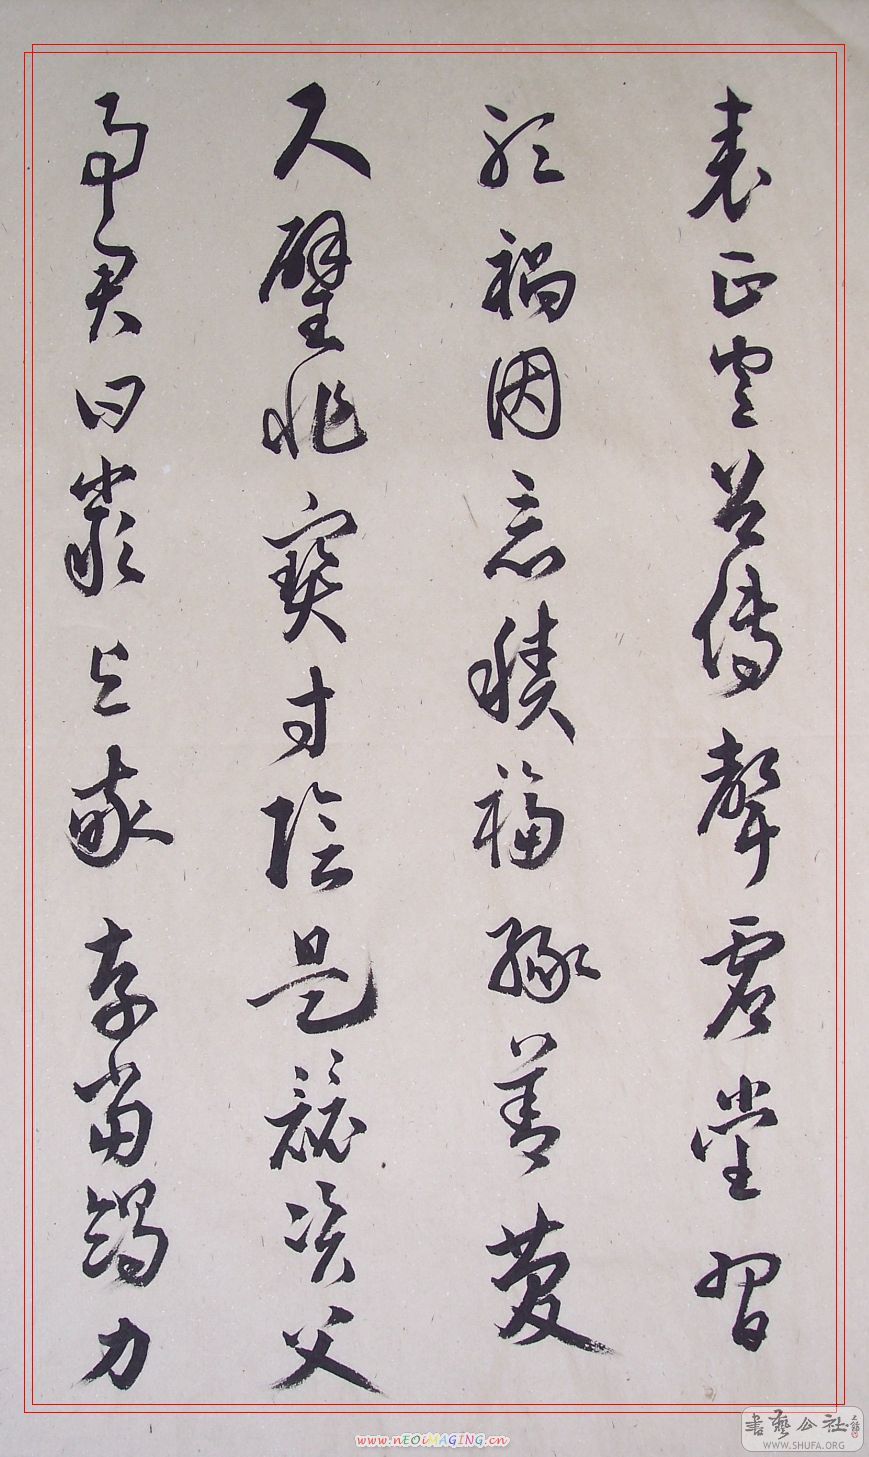 表正空谷傳聲虛堂習
聽禍因惡積福緣善慶
尺璧非寶寸陰是競資父
事君曰嚴與敬孝當竭力
www.nEOiMAGiNG.cn
書藝公社
WWW.SHUFA.ORG